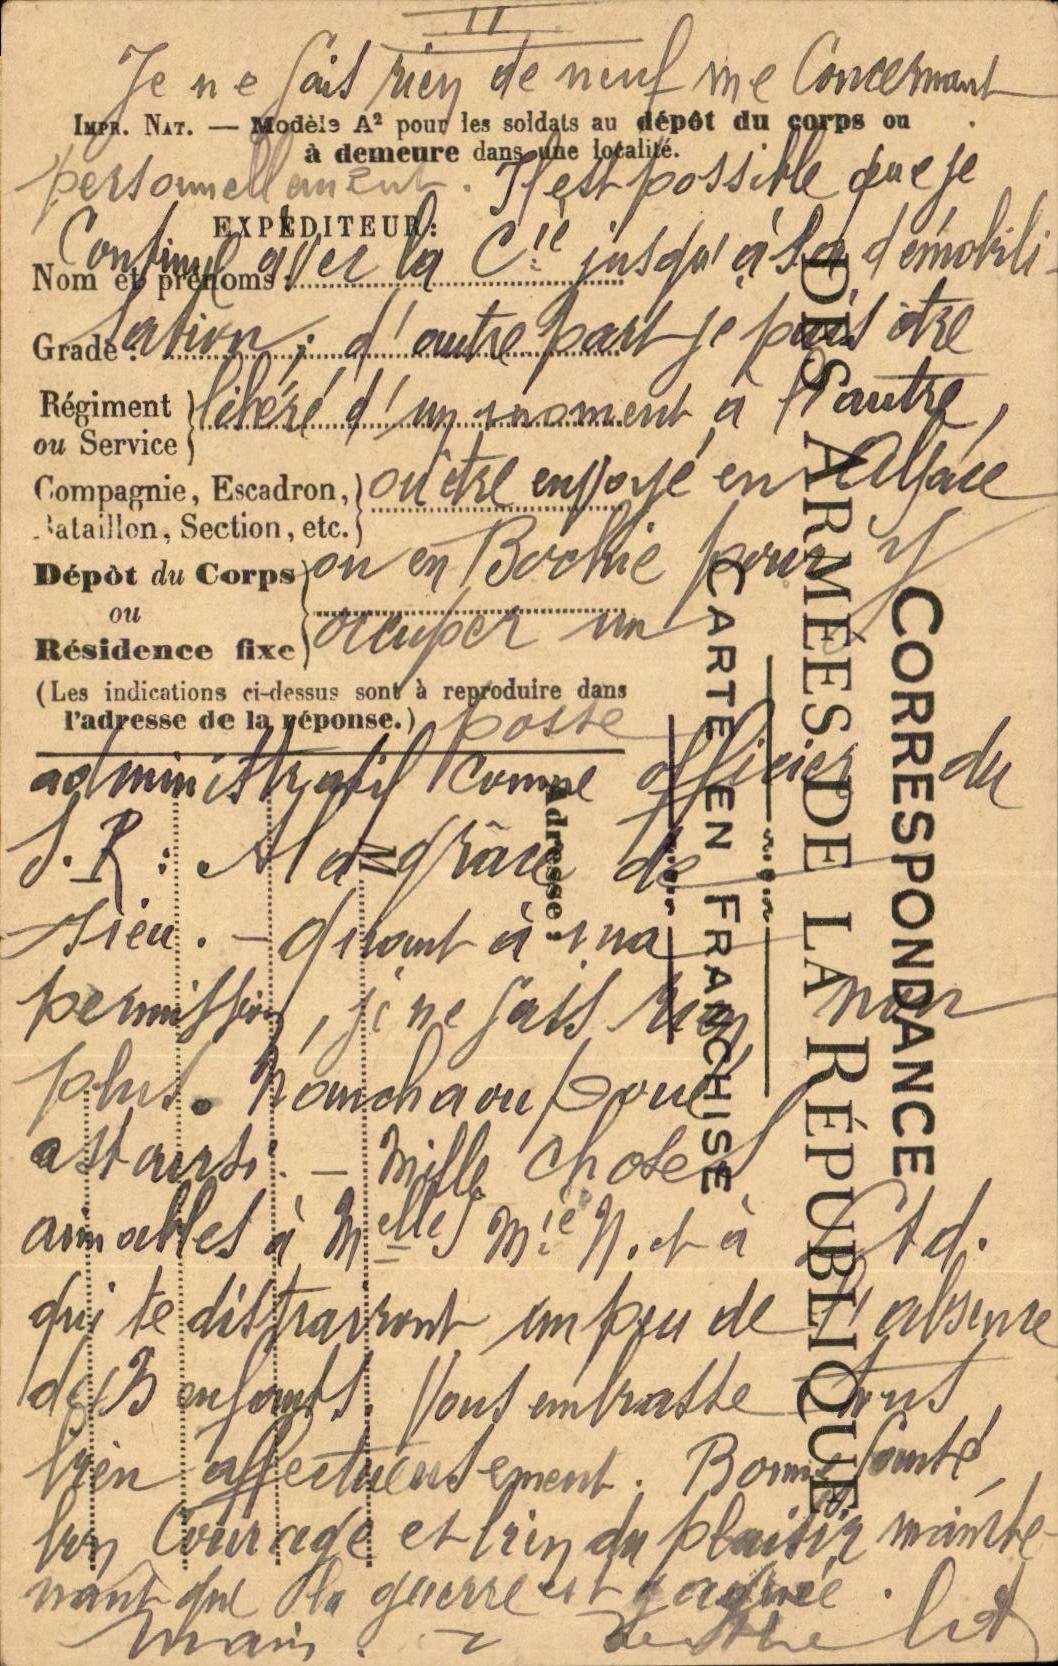 II
Je ne sais rien de neuf me Concernant
IMPR. NAT. — Modèle A² pour les soldats au dépôt du corps ou
à demeure dans une localité.
personnellement. Il est possible que je
EXPÉDITEUR:
Continue avec la Cie jusqu'à la démobili-
Nom et prénoms:
sation; d'autre part je puis être
Grade:
libéré d'un moment à l'autre,
Régiment
ou Service
ou être envoyé en Alsace
Compagnie, Escadron,
Bataillon, Section, etc.
ou en Bochie pour y
Dépôt du Corps
ou
occuper un
Résidence fixe
(Les indications ci-dessus sont à reproduire dans
l'adresse de la réponse.)
poste
administratif comme officier du
S.R: A la grâce de
Dieu. — Quant à ma
permission, je ne sais rien non
plus.
Mille choses
aimables à Melles Mie N. et à
qui te distrairont un peu de l'absence
des 3 enfants. Vous embrasse tous
bien affectueusement. Bonne Santé
bon Courage et bien du plaisir mainte-
nant que la guerre est gagnée.
CORRESPONDANCE
DES ARMÉES DE LA RÉPUBLIQUE
CARTE EN FRANCHISE
Adresse:
M